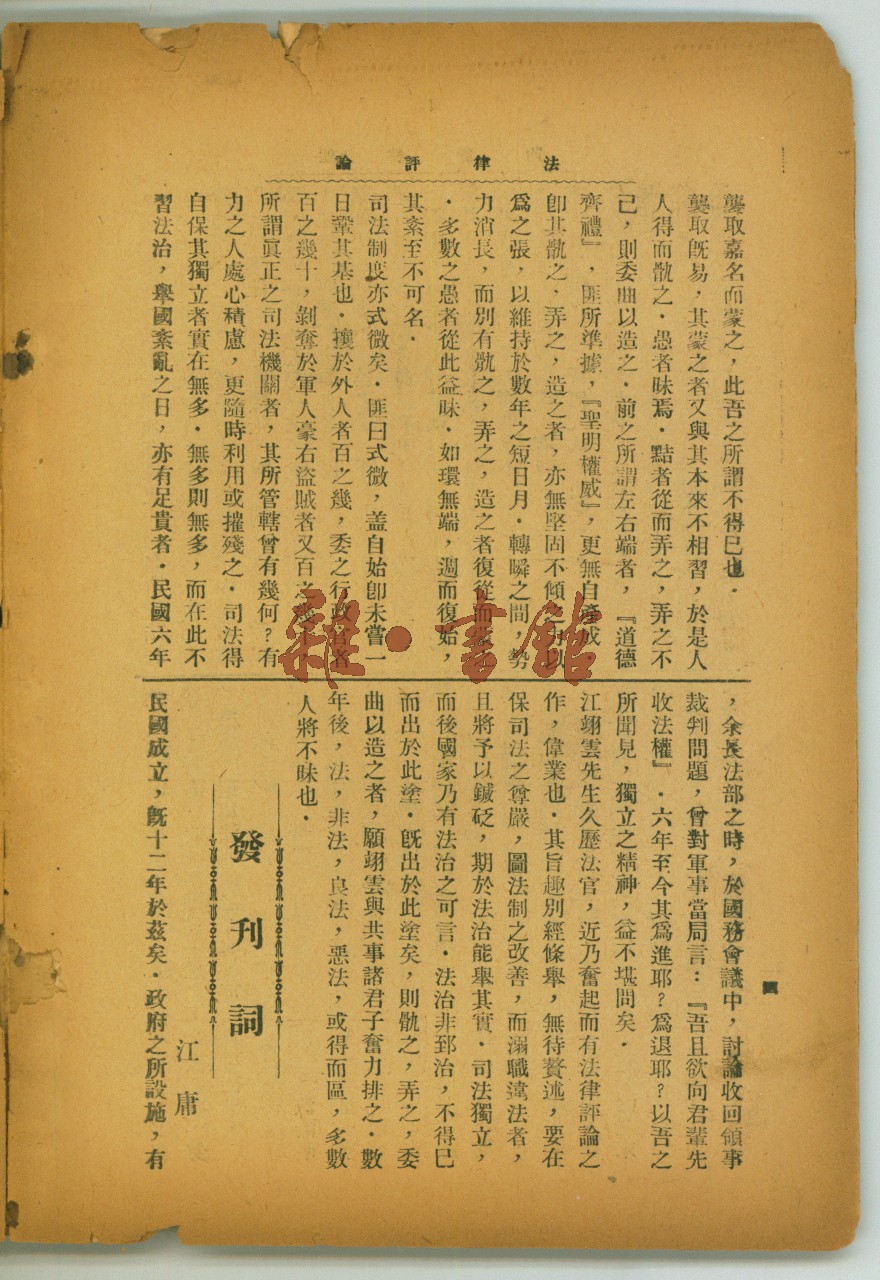 法律評論
四
襲取嘉名而蒙之，此吾之所謂不得已也．
襲取既易，其蒙之者又與其本來不相習，於是人
人得而骩之．愚者昧焉．黠者從而弄之，弄之不
已，則委曲以造之．前之所謂左右端者，『道德
齊禮』，匪所準據，『聖明權威』，更無自產成
卽其骩之，弄之，造之者，亦無堅固不傾之力以
爲之張，以維持於數年之短日月．轉瞬之間，勢
力消長，而別有骩之，弄之，造之者復從而
．多數之愚者從此益昧．如環無端，週而復始，
其紊至不可名．
司法制度亦式微矣．匪曰式微，盖自始卽未嘗一
日鞏其基也．攘於外人者百之幾，委之行政官者
百之幾十，剝奪於軍人豪右盜賊者又百之幾十，
所謂眞正之司法機關者，其所管轄曾有幾何？有
力之人處心積慮，更隨時利用或摧殘之．司法得
自保其獨立者實在無多．無多則無多，而在此不
習法治，舉國紊亂之日，亦有足貴者．民國六年
，余長法部之時，於國務會議中，討論收回領事
裁判問題，曾對軍事當局言：『吾且欲向君輩先
收法權』．六年至今其爲進耶？爲退耶？以吾之
所聞見，獨立之精神，益不堪問矣．
江翊雲先生久歷法官，近乃奮起而有法律評論之
作，偉業也．其旨趣別經條舉，無待贅述，要在
保司法之尊嚴，圖法制之改善，而溺職違法者，
且將予以鍼砭，期於法治能舉其實．司法獨立，
而後國家乃有法治之可言．法治非郅治，不得已
而出於此塗．旣出於此塗矣，則骩之，弄之，委
曲以造之者，願翊雲與共事諸君子奮力排之．數
年後，法，非法，良法，惡法，或得而區，多數
人將不昧也．
發刊詞
江庸
民國成立，旣十二年於茲矣．政府之所設施，有
雜·書館